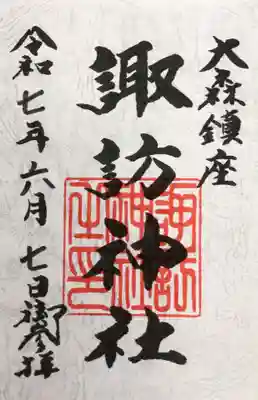 大森鎮座
諏訪神社
諏訪
神社
之印
令和七年六月七日御参拝